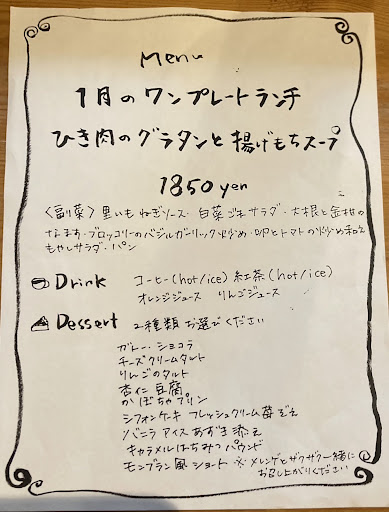 Menu
1月のワンプレートランチ
ひき肉のグラタンと揚げもちスープ
1850yen
〈副菜〉里いもねぎソース・白菜ごまサラダ・大根と金柑の
なます・ブロッコリーのバジルガーリック炒め・卵とトマトの炒め和え
もやしサラダ・パン
Drink コーヒー(hot/ice) 紅茶(hot/ice)
オレンジジュース りんごジュース
Dessert 2種類お選びください
ガトー・ショコラ
チーズクリームタルト
りんごのタルト
杏仁豆腐
かぼちゃプリン
シフォンケーキ フレッシュクリーム苺ぞえ
バニラアイスあずき添え
キャラメルはちみつパウンド
モンブラン風ショート ※メレンゲとザクザク一緒に
お召し上がりください